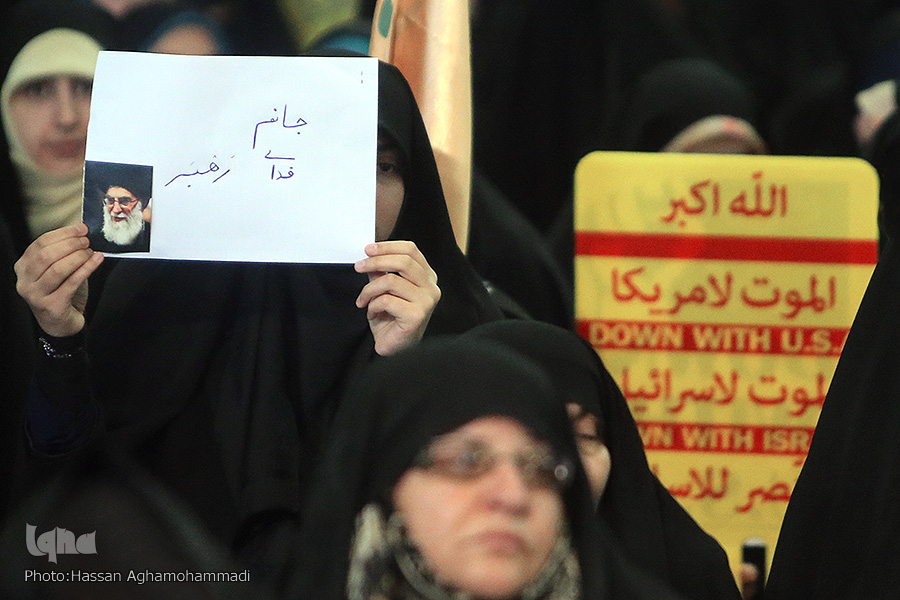 جانم
فدای
رهبر
الله اكبر
الموت لامريكا
DOWN WITH U.S.
الموت لاسرائيل
WN WITH ISR
نصر للاسلا
iqna
Photo:Hassan Aghamohammadi